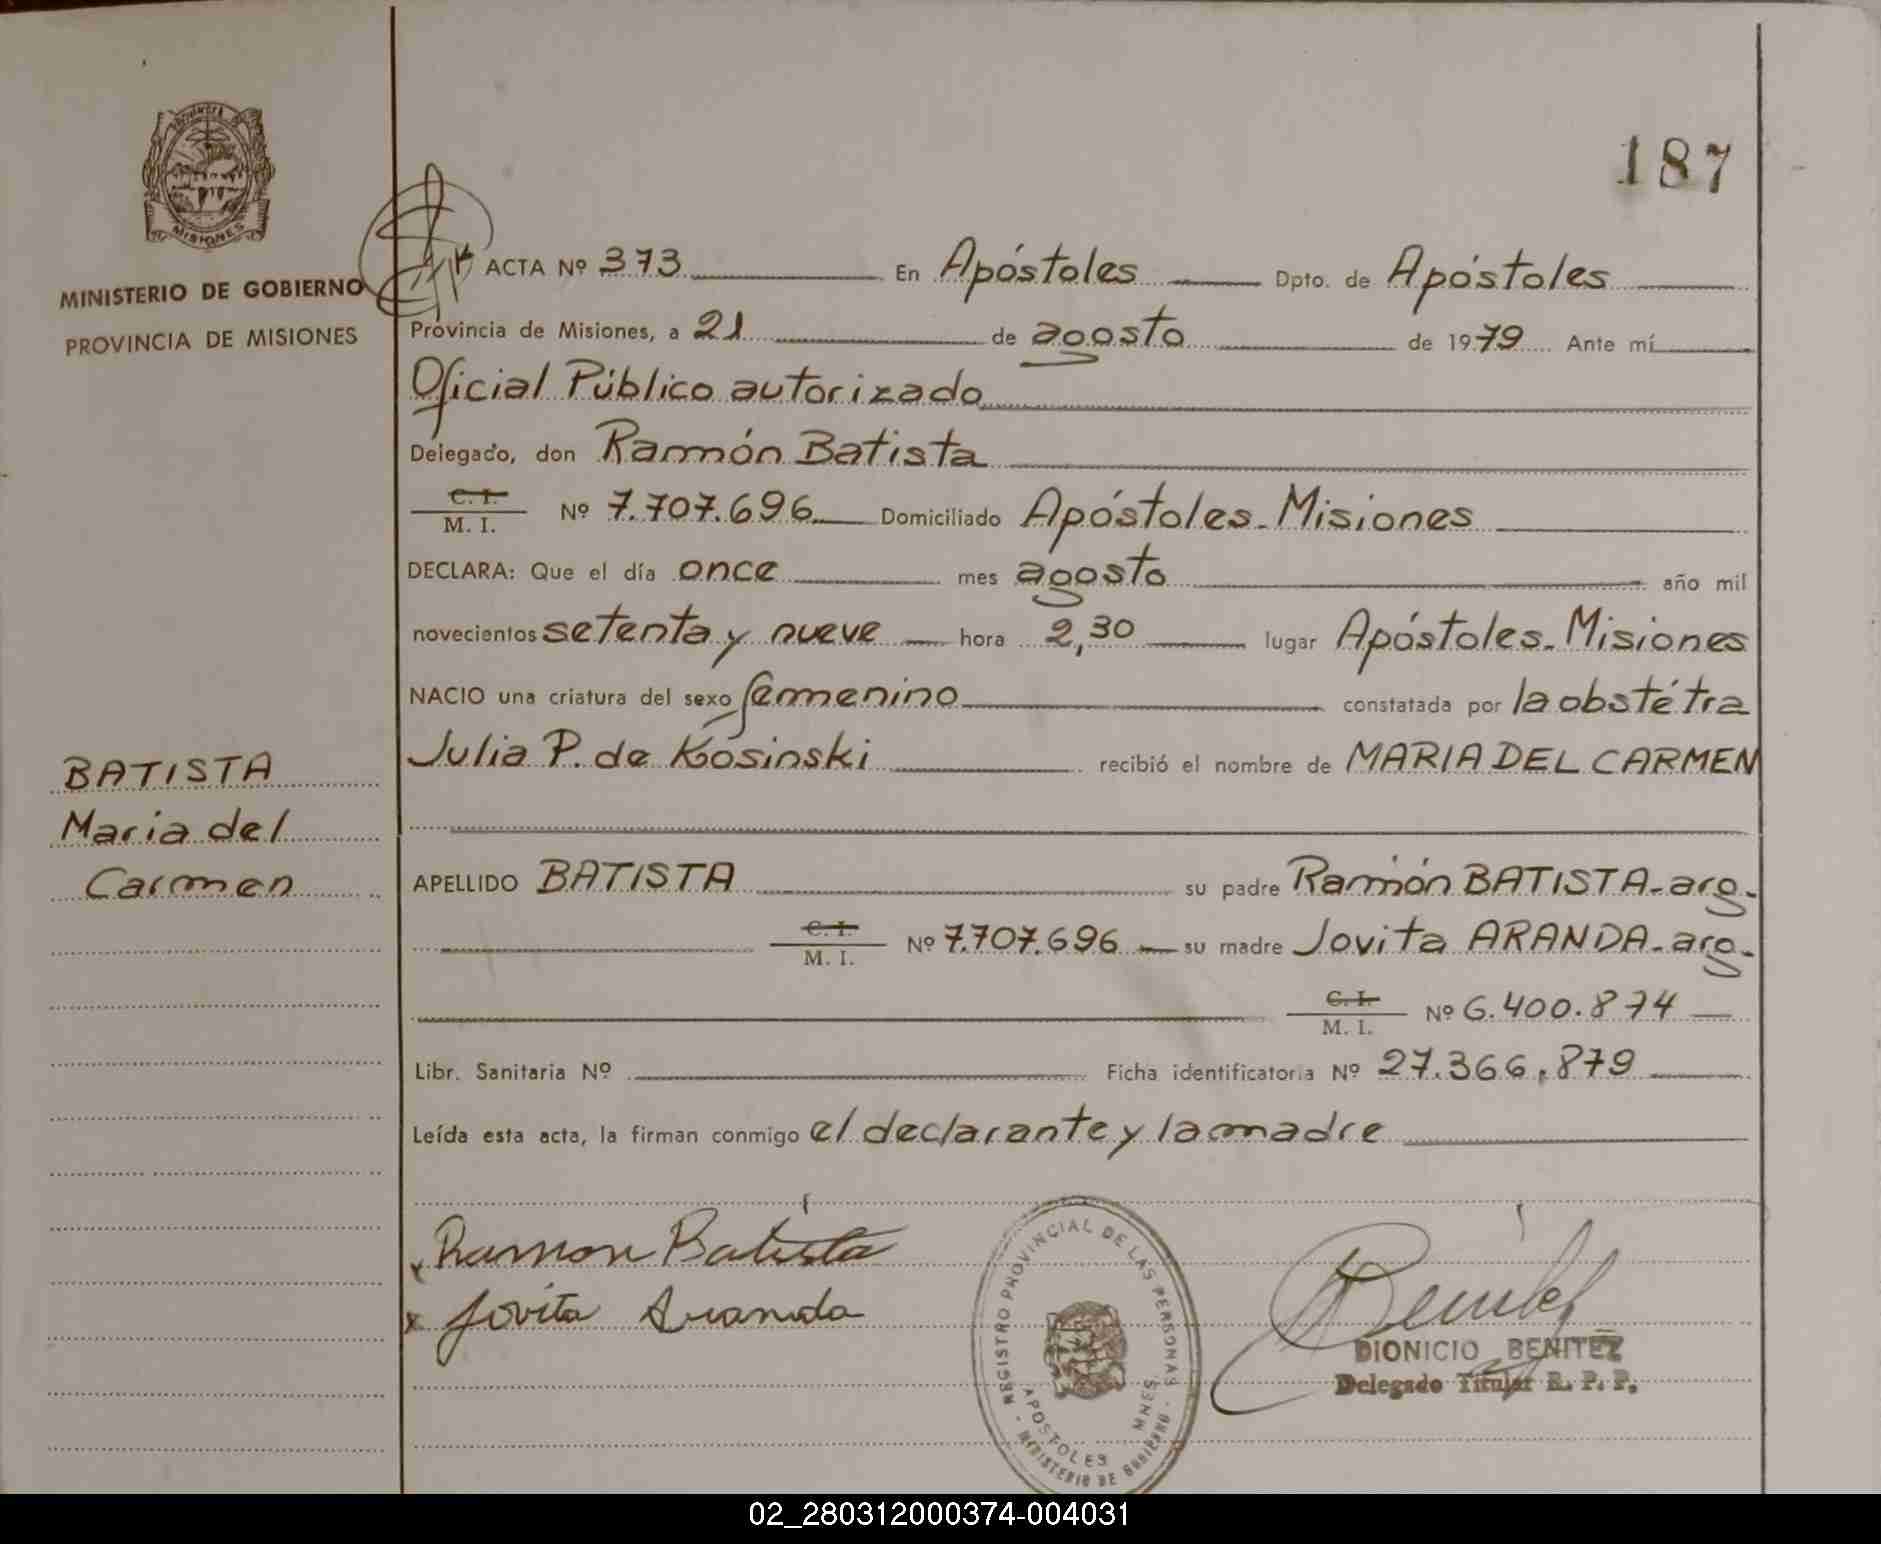 187
PROVINCIA DE
MISIONES
MINISTERIO DE GOBIERNO
PROVINCIA DE MISIONES
BATISTA
Maria del
Carmen
ACTA Nº 373 En Apóstoles Dpto. de Apóstoles
Provincia de Misiones, a 21 de agosto de 1979 Ante mí
Oficial Público autorizado
Delegado, don Ramón Batista
C. I.
M. I. Nº 7.707.696 Domiciliado Apóstoles - Misiones
DECLARA: Que el día once mes agosto año mil
novecientos setenta y nueve hora 2,30 lugar Apóstoles - Misiones
NACIO una criatura del sexo femenino constatada por la obstétra
Julia P. de Kosinski recibió el nombre de MARIA DEL CARMEN
APELLIDO BATISTA su padre Ramón BATISTA - arg -
C. I.
M. I. Nº 7.707.696 su madre Jovita ARANDA - arg -
C. I.
M. I. Nº 6.400.874
Libr. Sanitaria Nº Ficha identificatoria Nº 27.366.879
Leída esta acta, la firman conmigo el declarante y la madre
x Ramon Batista
x Jovita Aranda
REGISTRO PROVINCIAL DE LAS PERSONAS - MINISTERIO DE GOBIERNO -
APOSTOLES MNES
Benitez
DIONICIO BENITEZ
Delegado Titular R. P. P.
02_280312000374-004031